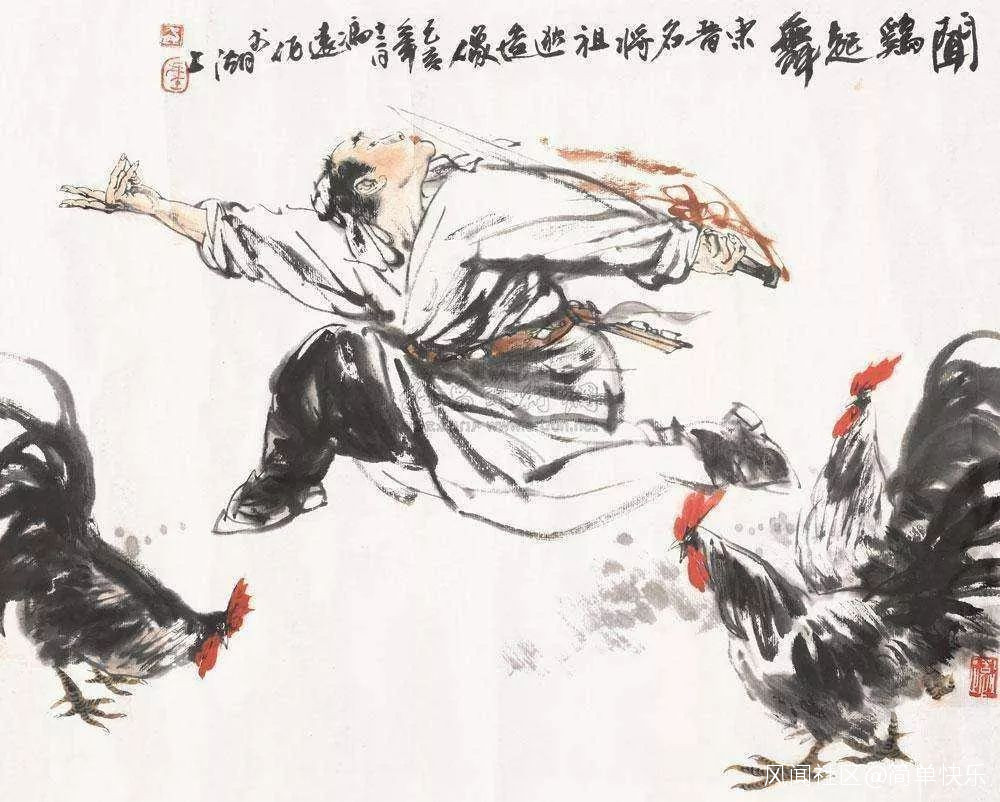 聞鷄起舞 東晋名將祖逖造像 己亥年 馮遠作 於湖上
风闻社区@简单快乐